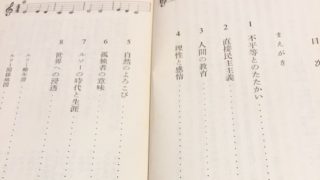 目次
まえがき
1 不平等とのたたかい
2 直接民主主義
3 人間の教育
4 理性と感情
5 自然のよろこび
6 孤独者の意味
7 ルソーの時代と生涯
8 世界への浸透
ルソー略年譜
ルソー関係地図